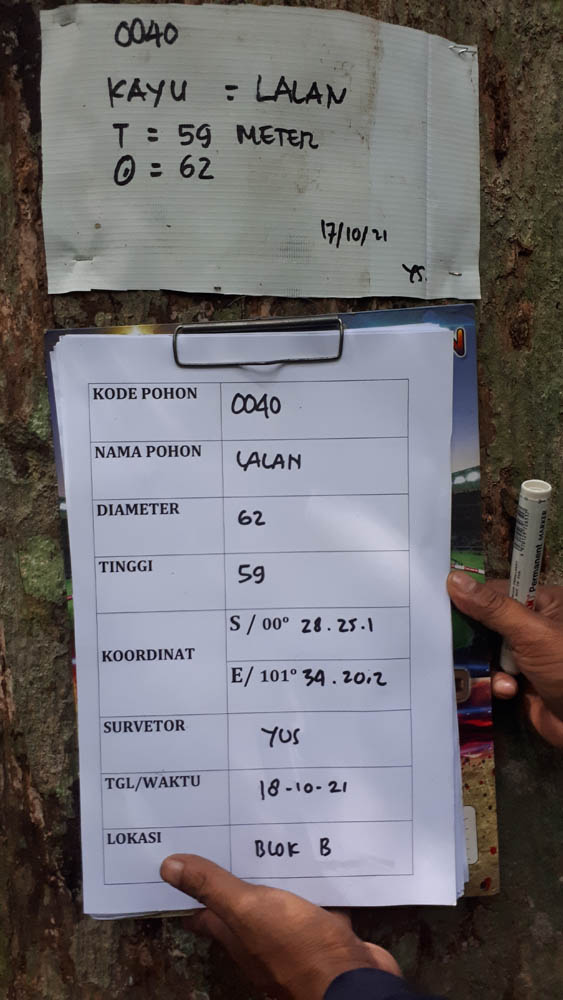 0040
KAYU = LALAN
T = 59 METER
O = 62
17/10/21
YS.
KODE POHON 0040
NAMA POHON LALAN
DIAMETER 62
TINGGI 59
KOORDINAT
S / 00° 28.25.1
E/ 101° 34.20.2
SURVETOR YUS
TGL/WAKTU 18-10-21
LOKASI BLOK B
Permanent MARKER